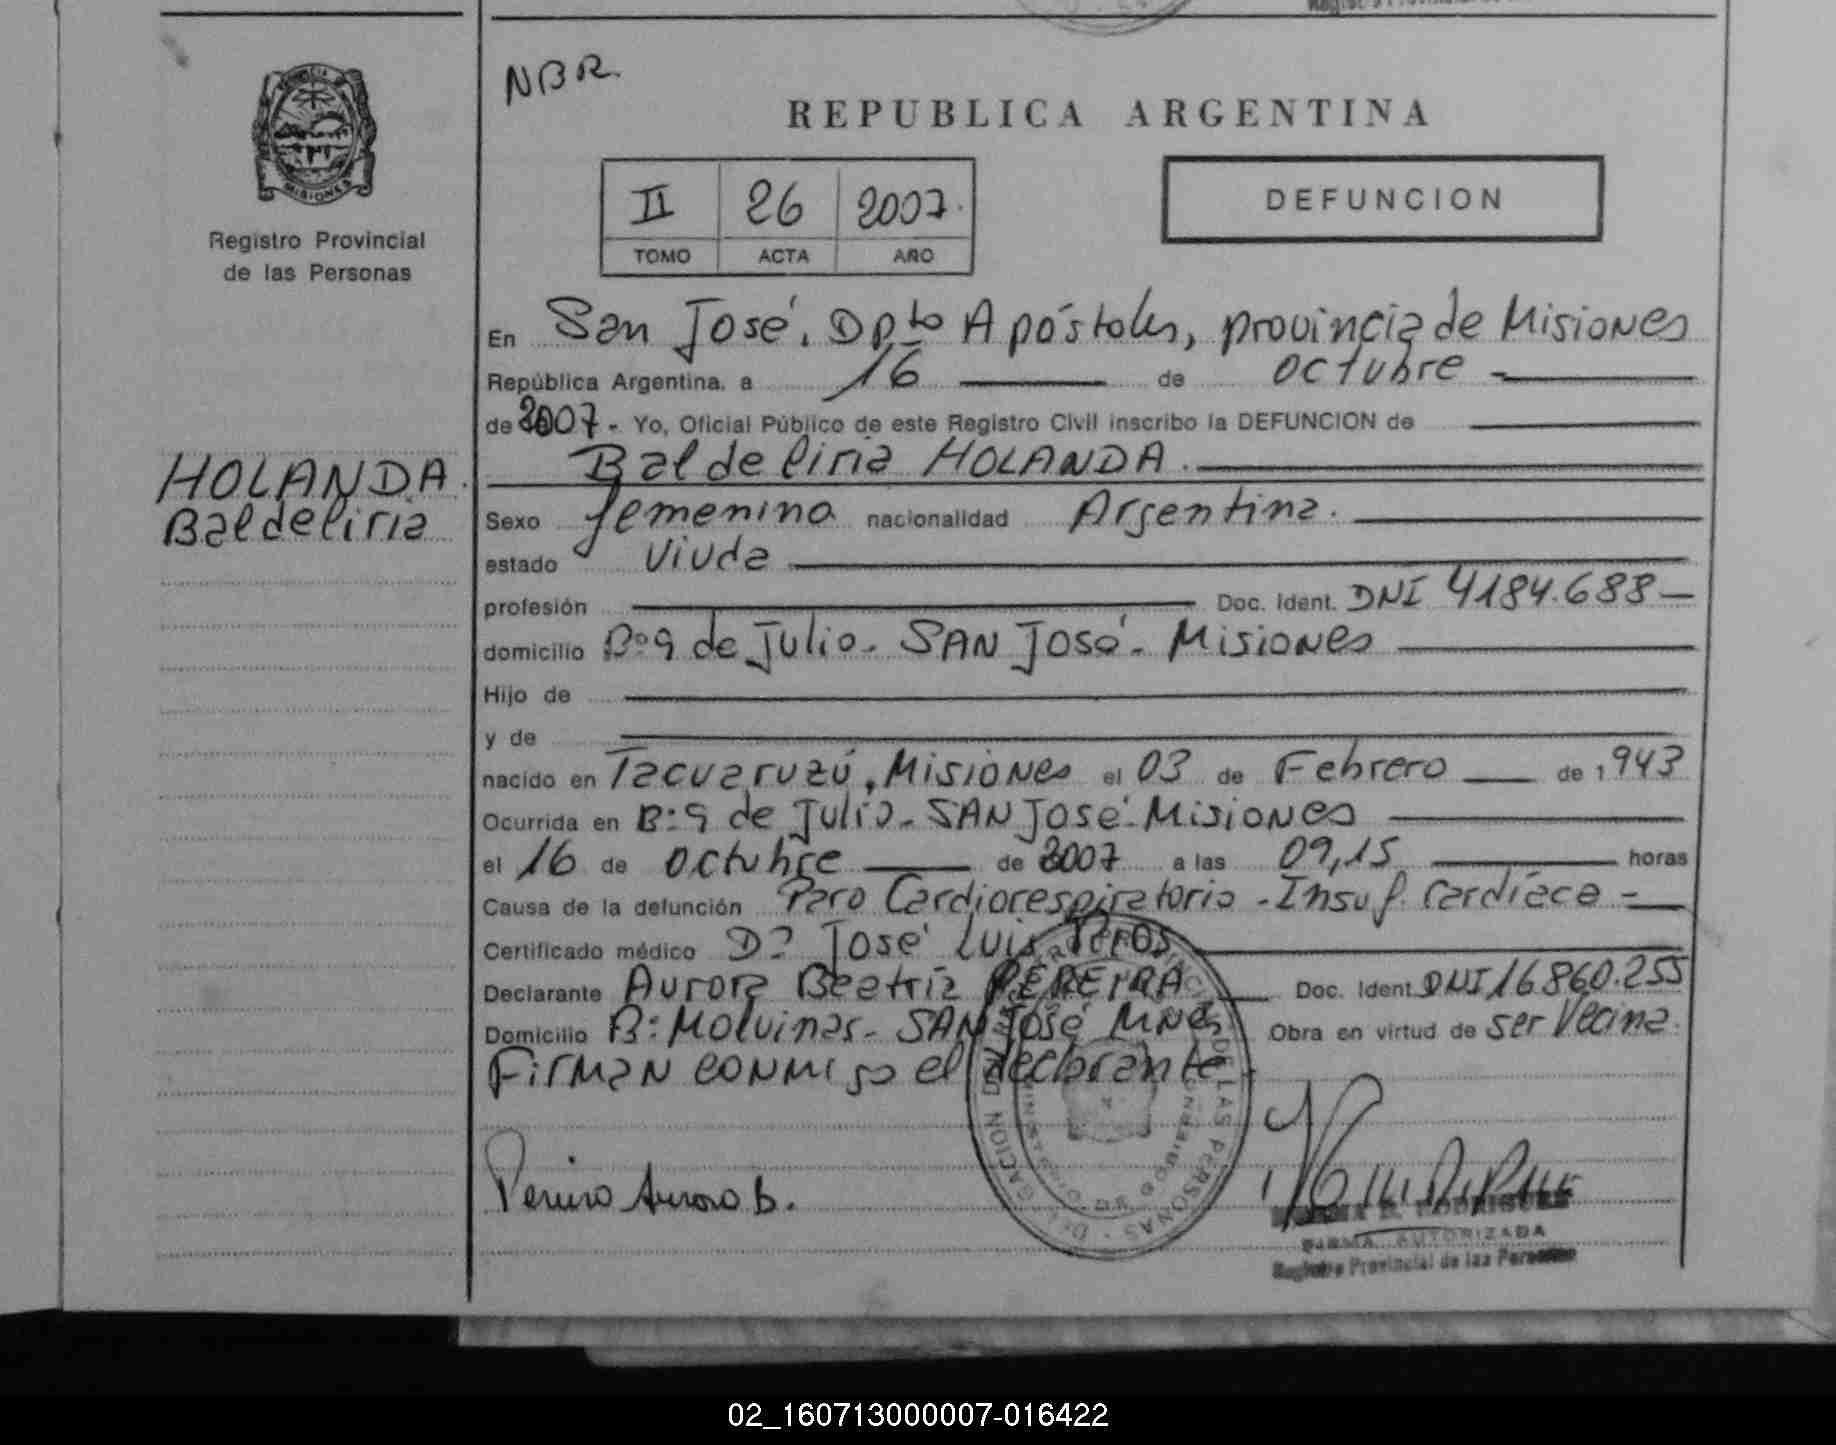 NBR.
REPUBLICA ARGENTINA
MISIONES
Registro Provincial
de las Personas
II 26 2007.
TOMO ACTA AÑO
DEFUNCION
En San José, Dpto Apóstoles, provincia de Misiones
República Argentina, a 16 de octubre
de 2007 - Yo, Oficial Público de este Registro Civil inscribo la DEFUNCION de
Baldeliria HOLANDA.
HOLANDA.
Baldeliria
Sexo femenino nacionalidad Argentina.
estado Viuda
profesión Doc. Ident. DNI 4184.688
domicilio Bº 9 de Julio - SAN José - Misiones
Hijo de
y de
nacido en Tacuaruzú, Misiones el 03 de Febrero de 1943
Ocurrida en B: 9 de Julio - SAN José - Misiones
el 16 de octubre de 2007 a las 09,15 horas
Causa de la defunción Paro Cardiorespiratorio - Insuf. Cardíaca -
Certificado médico Dr José Luis
Declarante Aurora Beatriz PEREIRA Doc. Ident. DNI 16860.255
Domicilio B: Malvinas - SAN José Mnes Obra en virtud de ser Vecina.
Firman conmigo el declarante
Pereira Aurora B.
DELEGACION DE LAS PERSONAS
RODRIGUEZ
FIRMA AUTORIZADA
Registro Provincial de las Personas
02_160713000007-016422